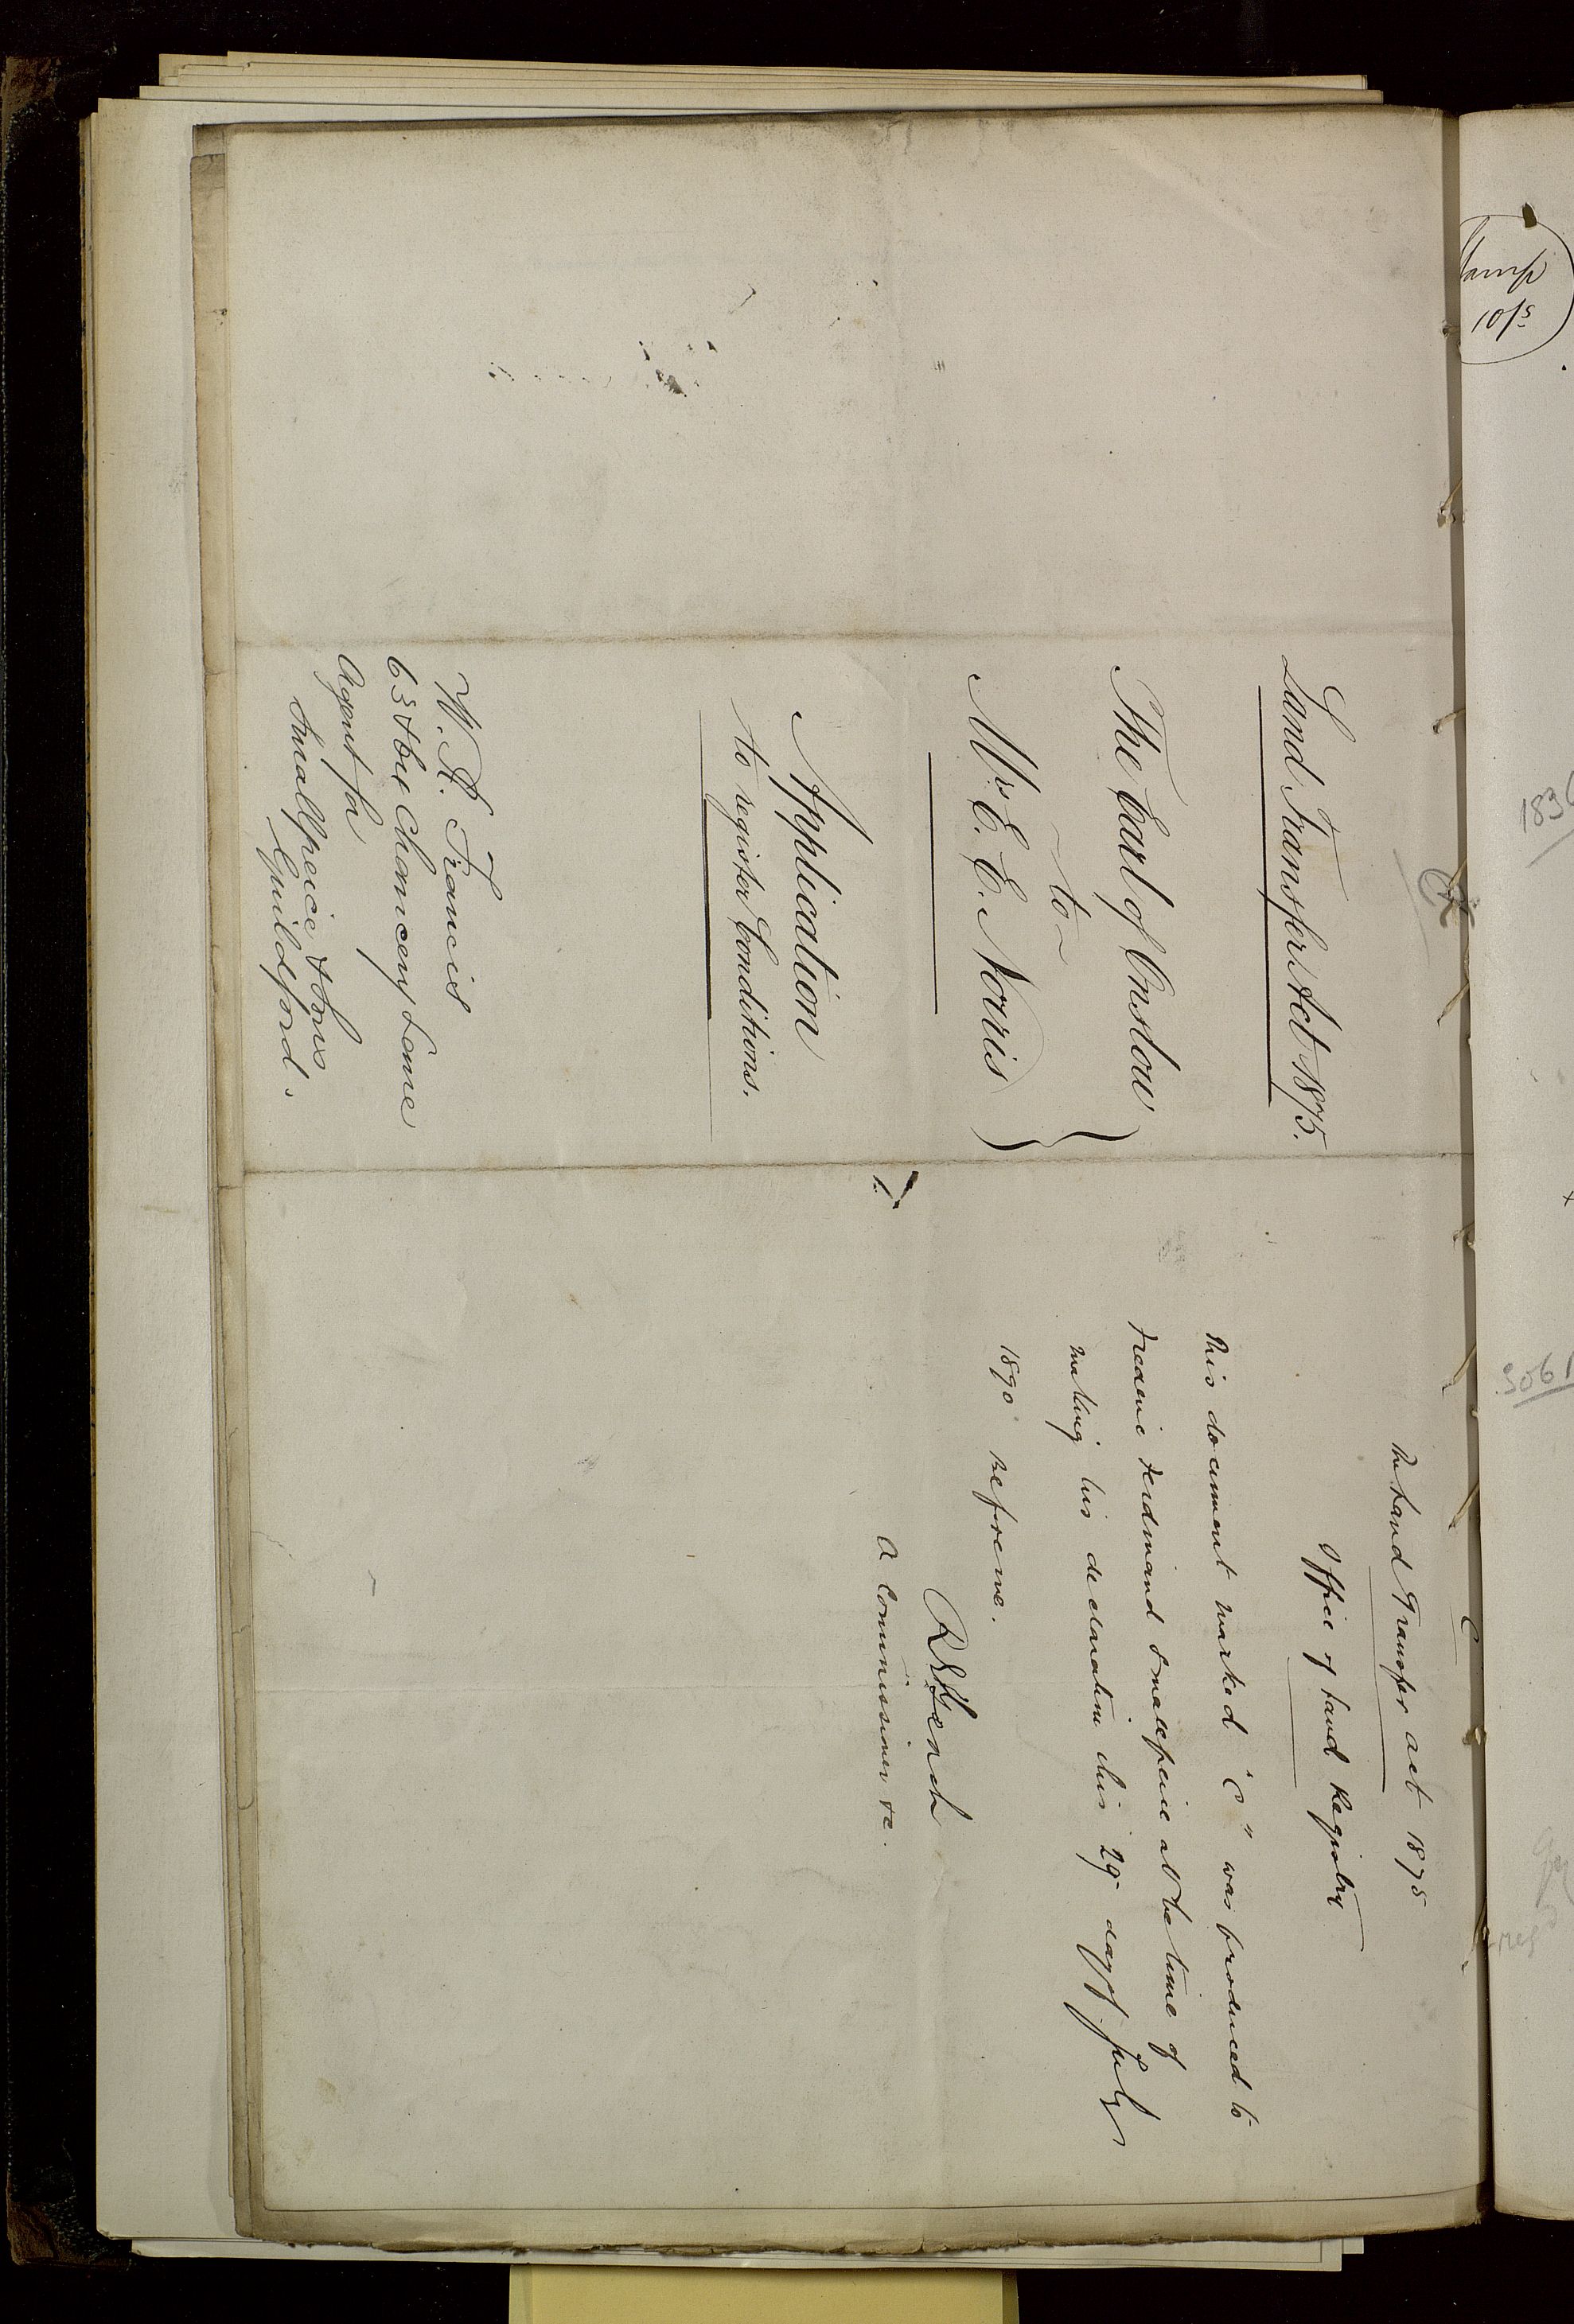 Land Transfer Act 1875.
The Earl of Onslow
~ to ~
Mr. E. E. Norris
Application
to register Conditions.
W. A. Francis
63 & 64 Chancery Lane
Agent for
Smallpeice & Sons
Guildford.
C
The Land Transfer Act 1875
Office of Land Registry
This document marked "C" was produced to
Frederic Ferdinand Smallpeice at the time of
making his declaration this 29th day of July
1890 before me.
A Commissioner &c.
Stamp
10/s